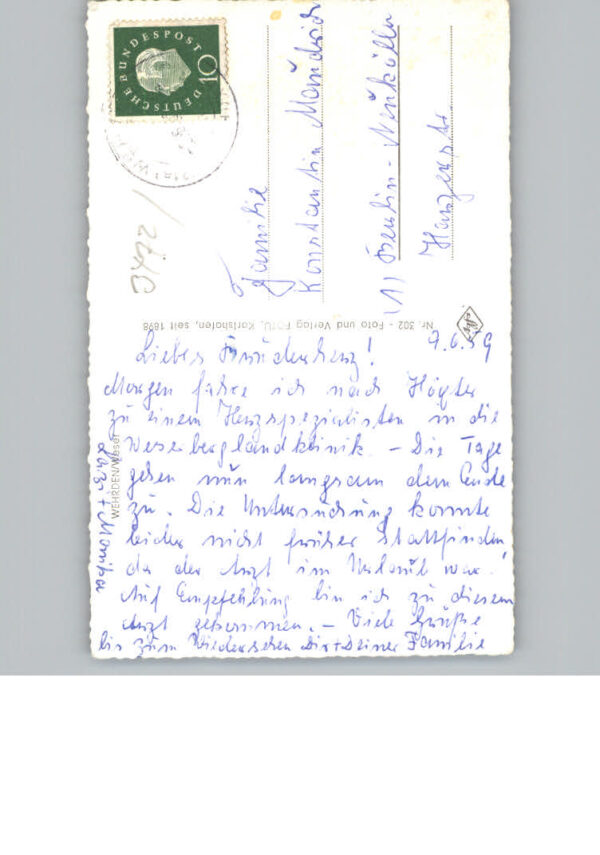 DEUTSCHE BUNDESPOST
10
3472 /
Familie
Konstantin
(1) Berlin-Neukölln
Harzerstr.
Nr. 302 - Foto und Verlag FOTU, Karlshafen, seit 1898
7.6.59
Liebes Brüderherz!
Morgen fahre ich nach Höxter
zu einem Herzspezialisten in die
Weserberglandklinik. - Die Tage
gehen nun langsam dem Ende
zu. Die Untersuchung konnte
leider nicht früher stattfinden,
da der Arzt im Urlaub war.
Auf Empfehlung bin ich zu diesem
Arzt gekommen. - Viele Grüße
bis zum Wiedersehen Dir + Deiner Familie
+ Monika
WEHRDEN/Weser